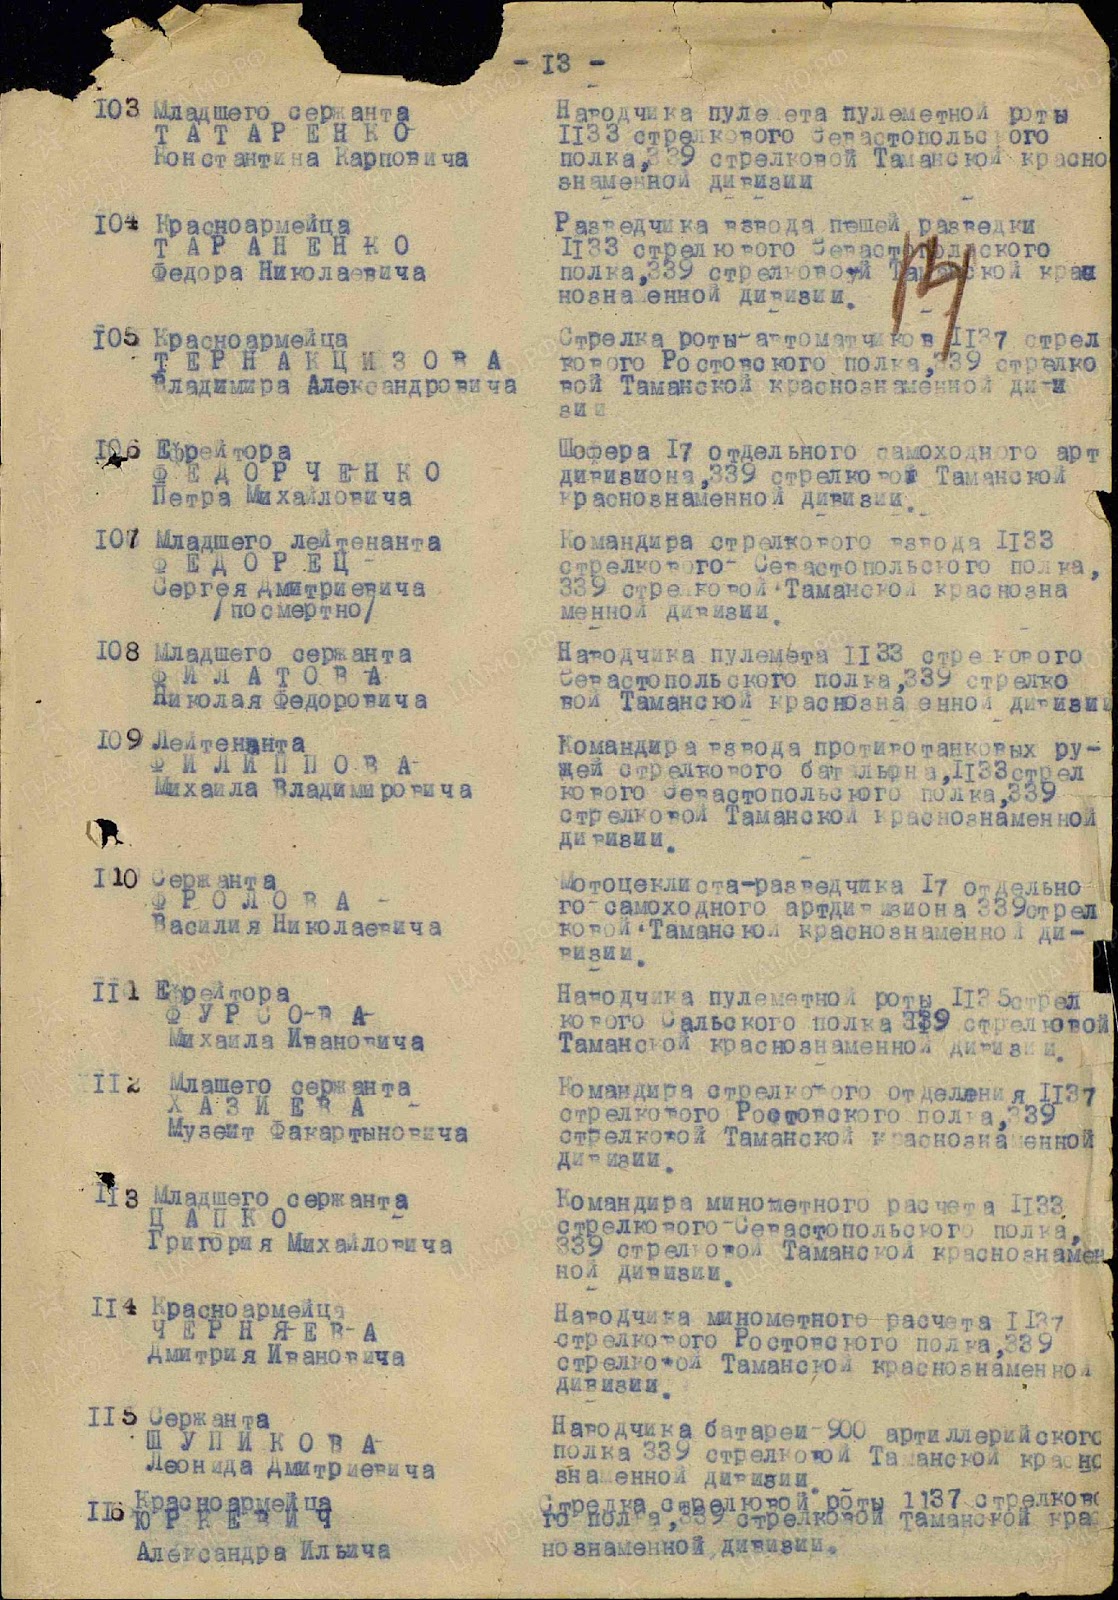 - 13 -
103 Младшего сержанта
Т А Т А Р Е Н К О
Константина Карповича
Наводчика пулемета пулеметной роты
1133 стрелкового Севастопольского
полка,339 стрелковой Таманской красно
знаменной дивизии
104 Красноармейца
Т А Р А Н Е Н К О
Федора Николаевича
Разведчика взвода пешей разведки
1133 стрелкового Севастопольского
полка,339 стрелковой Таманской крас
нознаменной дивизии.
105 Красноармейца
Т Е Р Н А К Ц И З О В А
Владимира Александровича
Стрелка роты автоматчиков 1137 стрел
кового Ростовского полка,339 стрелко
вой Таманской краснознаменной диви
зии
106 Ефрейтора
Ф Е Д О Р Ч Е Н К О
Петра Михайловича
Шофера 17 отдельного самоходного арт
дивизиона,339 стрелковой Таманской
краснознаменной дивизии.
107 Младшего лейтенанта
Ф Е Д О Р Е Ц
Сергея Дмитриевича
/посмертно/
Командира стрелкового взвода 1133
стрелкового Севастопольского полка,
339 стрелковой Таманской краснозна
менной дивизии.
108 Младшего сержанта
Ф И Л А Т О В А
Николая Федоровича
Наводчика пулемета 1133 стрелкового
Севастопольского полка,339 стрелко
вой Таманской краснознаменной дивизии
109 Лейтенанта
Ф И Л И П П О В А
Михаила Владимировича
Командира взвода противотанковых ру-
жей стрелкового батальона,1133 стрел
кового Севастопольского полка,339
стрелковой Таманской краснознаменной
дивизии.
110 Сержанта
Ф Р О Л О В А
Василия Николаевича
Мотоцеклиста-разведчика 17 отдельно
го самоходного артдивизиона 339 стрел
ковой Таманской краснознаменной ди-
визии.
111 Ефрейтора
Ф У Р С О В А
Михаила Ивановича
Наводчика пулеметной роты 1135 стрел
кового Сальского полка 339 стрелковой
Таманской краснознаменной дивизии.
112 Млашего сержанта
Х А З И Е В А
Музеит Факартыновича
Командира стрелкового отделения 1137
стрелкового Ростовского полка,339
стрелковой Таманской краснознаменной
дивизии.
113 Младшего сержанта
Ц А П К О
Григория Михайловича
Командира минометного расчета 1133
стрелкового Севастопольского полка,
339 стрелковой Таманской краснознамен
ной дивизии.
114 Красноармейца
Ч Е Р Н Я Е В А
Дмитрия Ивановича
Наводчика минометного расчета 1137
стрелкового Ростовского полка,339
стрелковой Таманской краснознаменной
дивизии.
115 Сержанта
Ш У П И К О В А
Леонида Дмитриевича
Наводчика батареи 900 артиллерийского
полка 339 стрелковой Таманской красно
знаменной дивизии.
116 Красноармейца
Ю Р К Е В И Ч
Александра Ильича
Стрелка стрелковой роты 1137 стрелково
го полка,339 стрелковой Таманской крас
нознаменной дивизии.